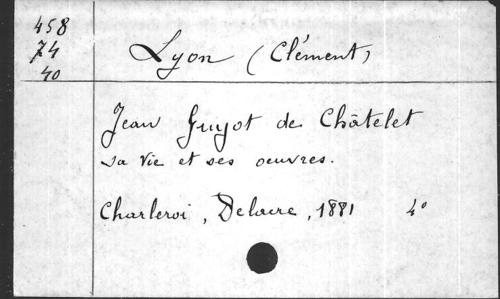 458
74
40
Lyon (Clément)
Jean Guyot de Châtelet
sa vie et ses oeuvres.
Charleroi, Delacre, 1881 4°